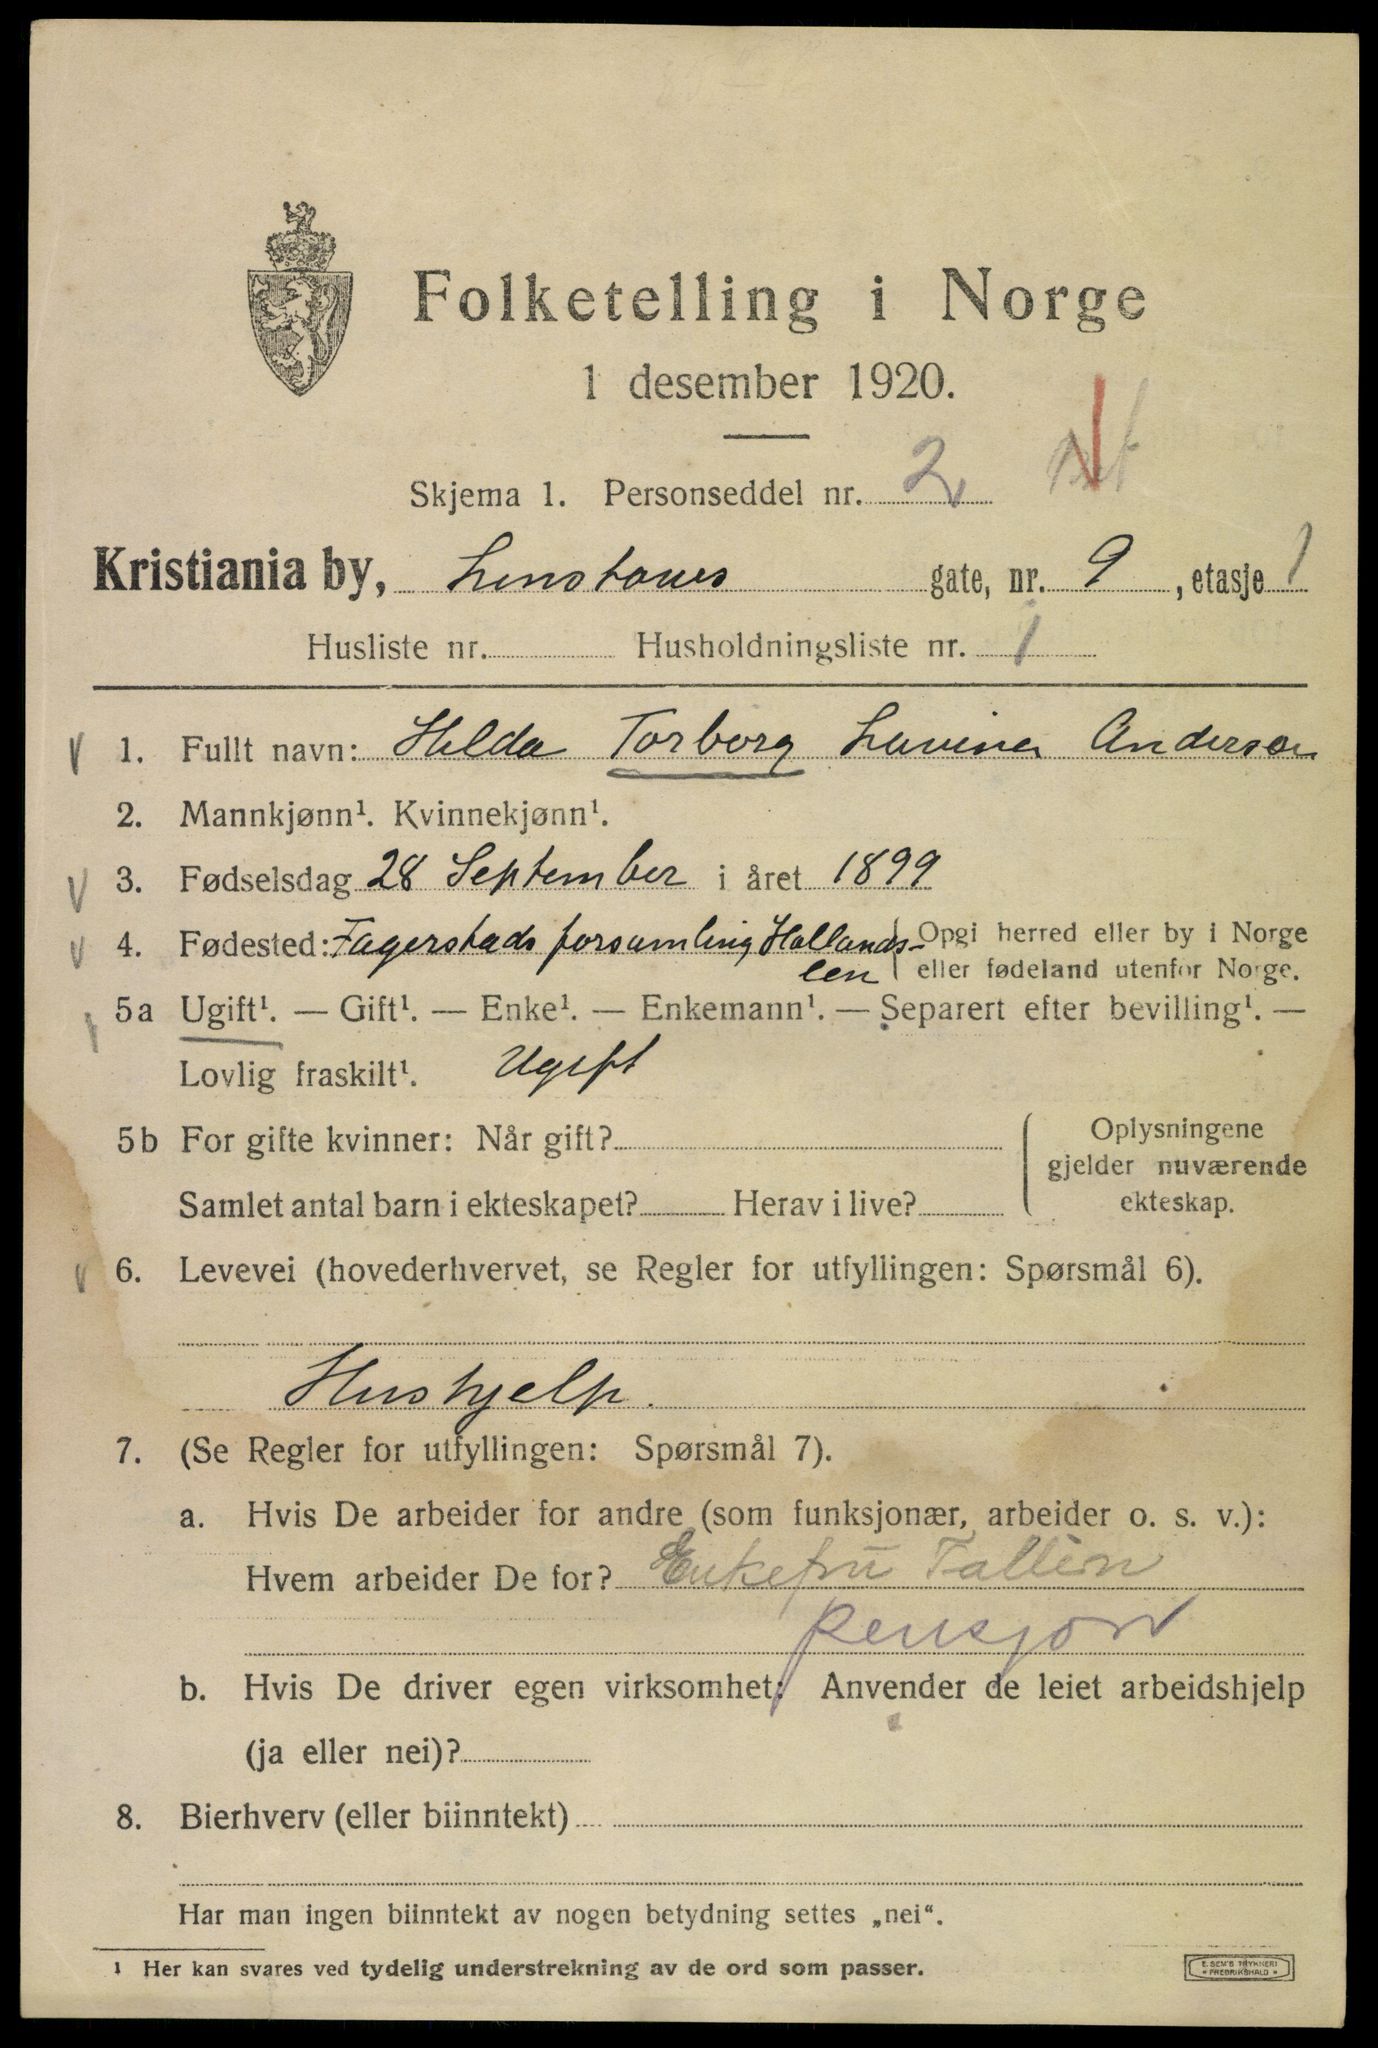 Folketelling i Norge
1 desember 1920.
Skjema 1. Personseddel nr. 2
Kristiania by, Linstows gate, nr. 9, etasje 1
Husliste nr. Husholdningsliste nr. 1
1. Fullt navn: Hilda Torborg Lovina Anderson
2. Mannkjønn¹. Kvinnekjønn¹.
3. Fødselsdag 28 September i året 1899
4. Fødested: Fagerstads forsamling Hallands- Opgi herred eller by i Norge
len eller fødeland utenfor Norge.
5a Ugift¹. — Gift¹. — Enke¹. — Enkemann¹. — Separert efter bevilling¹. —
Lovlig fraskilt¹. Ugift
5b For gifte kvinner: Når gift? Oplysningene
gjelder nuværende
Samlet antal barn i ekteskapet? Herav i live? ekteskap.
6. Levevei (hovederhvervet, se Regler for utfyllingen: Spørsmål 6).
Hushjelp.
7. (Se Regler for utfyllingen: Spørsmål 7).
a. Hvis De arbeider for andre (som funksjonær, arbeider o. s. v.):
Hvem arbeider De for? Enkefru Tallèn
pensjon
b. Hvis De driver egen virksomhet: Anvender de leiet arbeidshjelp
(ja eller nei)?
8. Bierhverv (eller biinntekt)
Har man ingen biinntekt av nogen betydning settes „nei“.
¹ Her kan svares ved tydelig understrekning av de ord som passer.
E. SEM'S TRYKKERI
FREDRIKSHALD